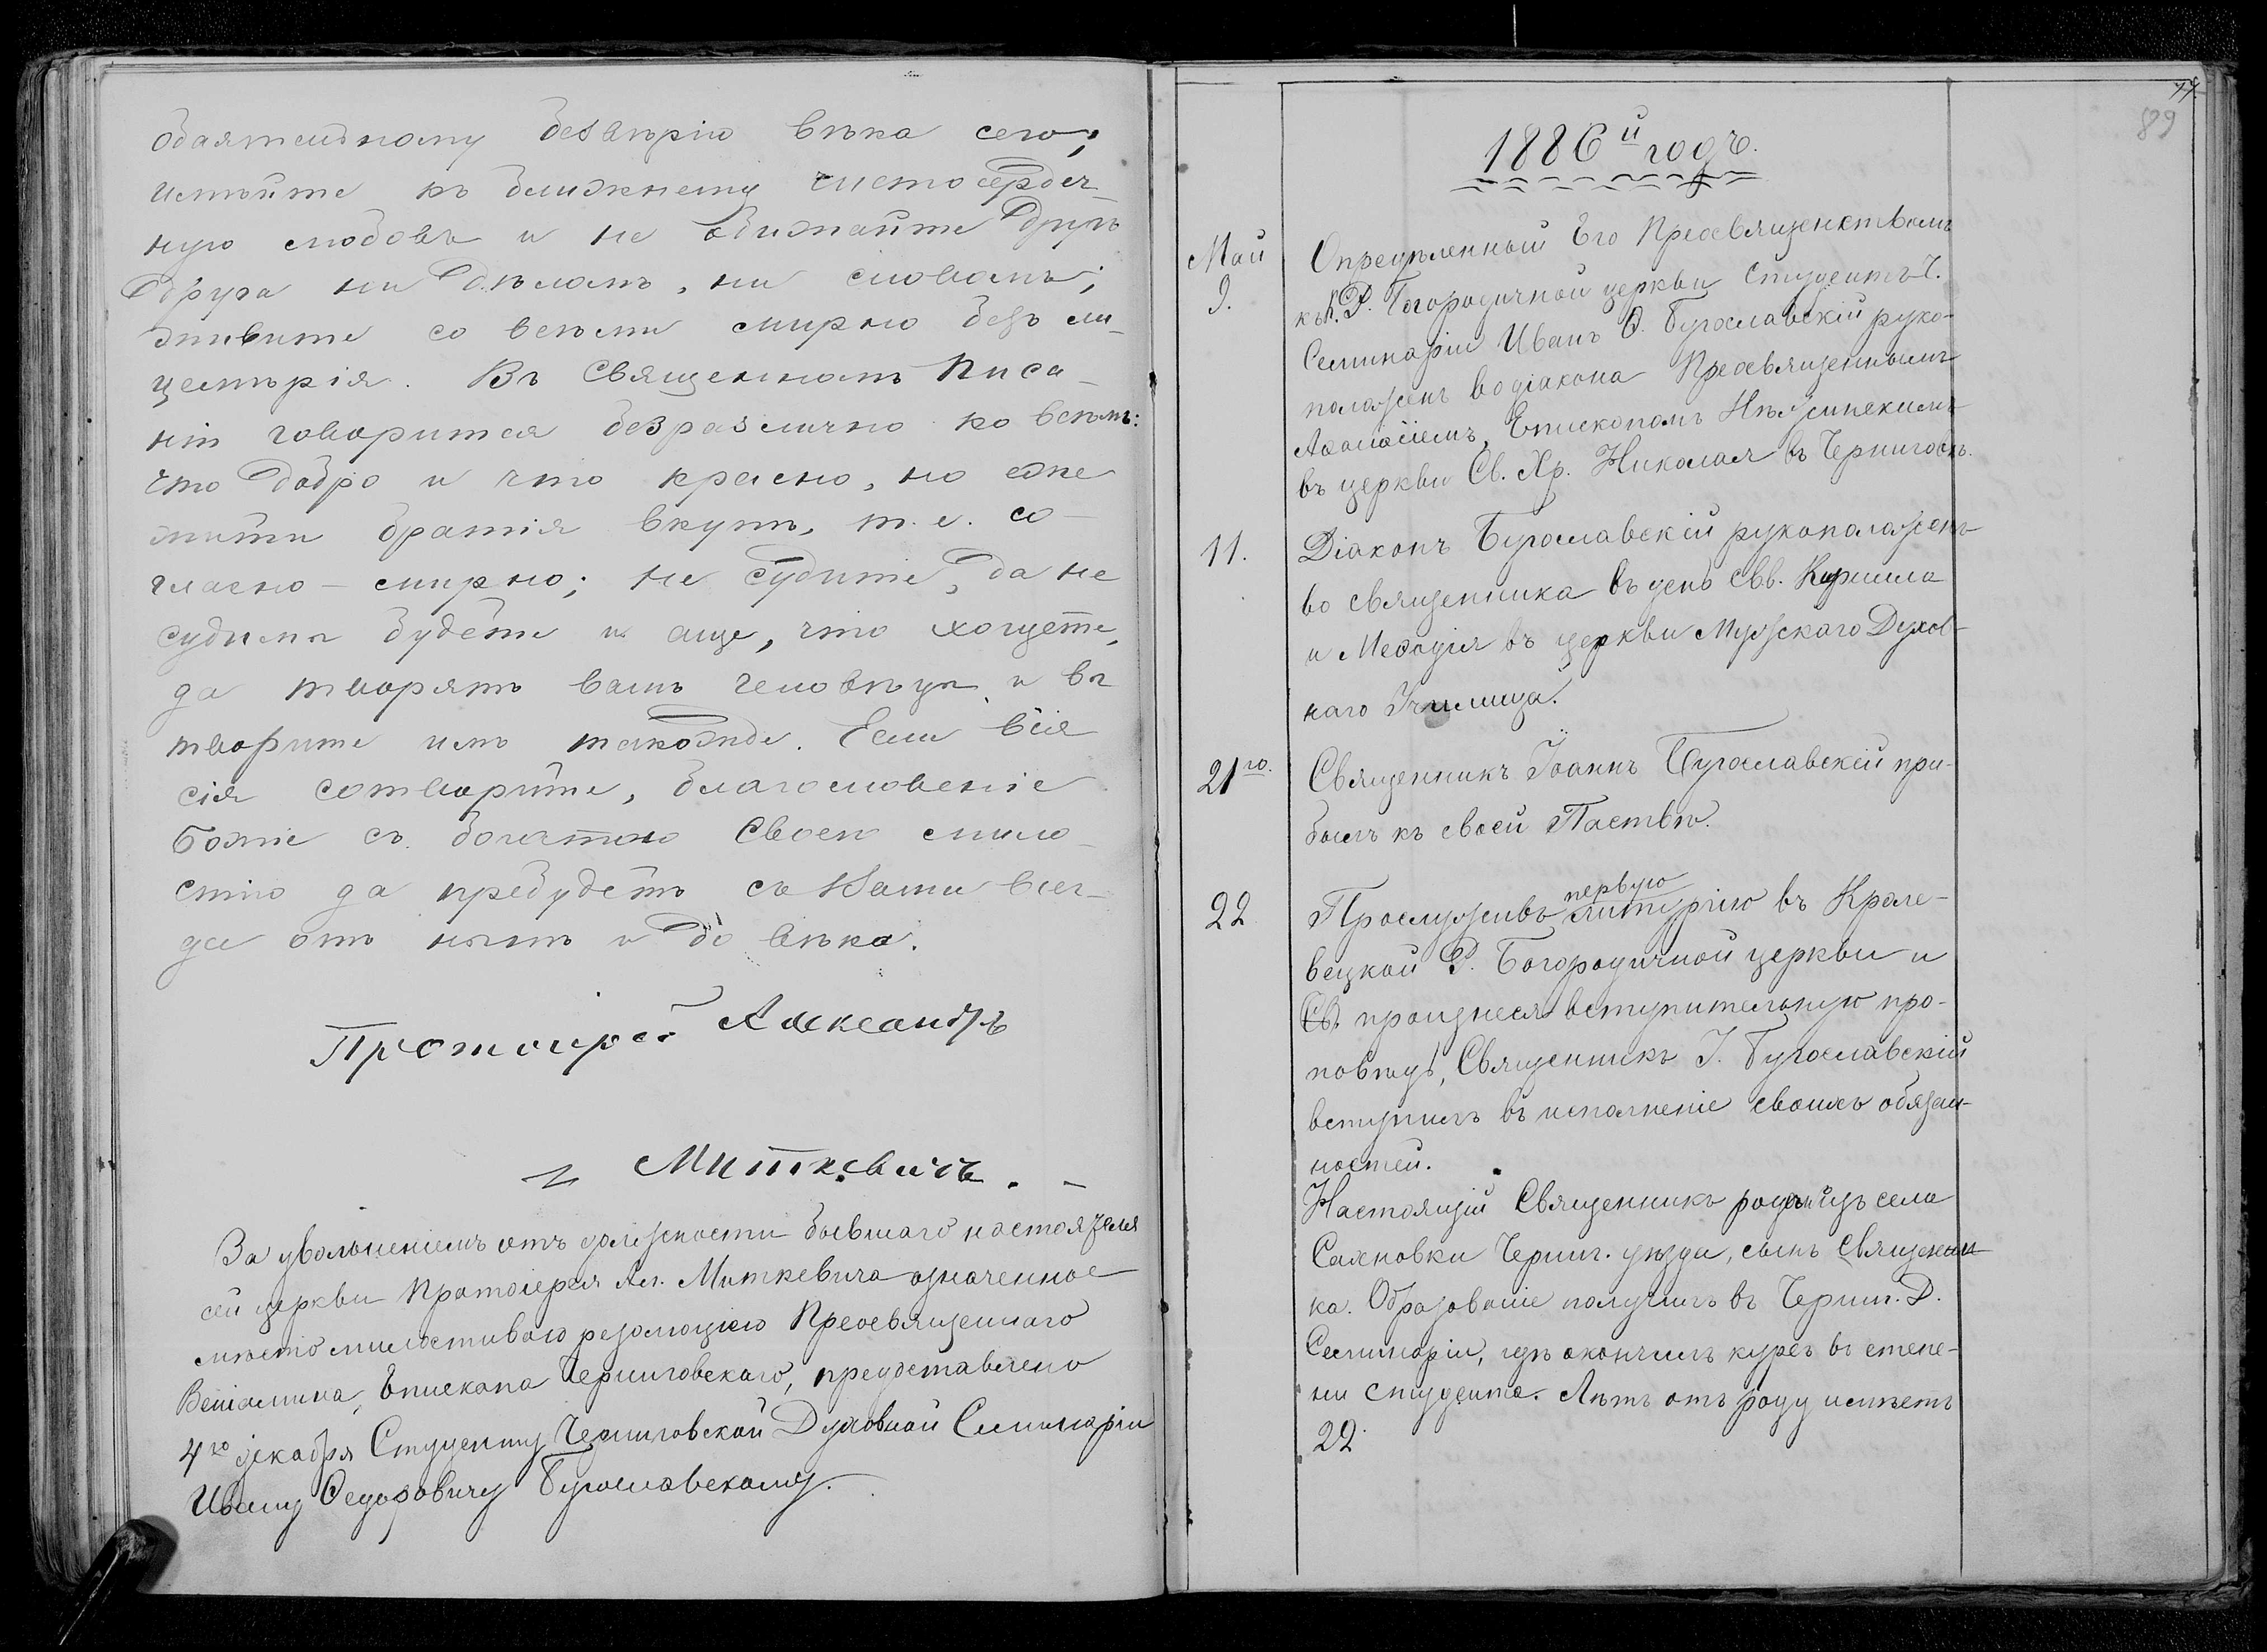 обаятельному безвѣрію вѣка сего;
имѣйте къ ближнему чистосердеч-
ную любовь и не обижайте другъ
друга ни дѣломъ, ни словомъ;
живите со всѣми мирно безъ ли-
цемѣрія. Въ Священномъ Писа-
ніи говорится безразлично ко всѣмъ:
что добро и что красно, но еже
жити братія вкупѣ, т. е. со-
гласно - мирно; не судите, да не
судимы будете и аще, что хощете,
да творятъ вамъ человѣцы, и вы
творите имъ такожде. Если вся
сія сотворите, благословеніе
Божіе съ богатою Своею мило-
стію да пребудетъ съ Вами всег-
да отъ нынѣ и до вѣка.
Протоіерей Александръ
Миткевичъ. -
За увольненіемъ отъ должности бывшаго настоятеля
сей церкви Протоіерея Ал. Миткевича означенное
мѣсто милостивою резолюціею Преосвященнаго
Веніамина, Епископа Черниговскаго, предоставлено
4го декабря Студенту Черниговской Духовной Семинаріи
Ивану Ѳедоровичу Бугославскому.
77.
89
1886й годъ.
Май 9.
Опредѣленный Его Преосвященствомъ
къ К. Р. Богородичной церкви Студентъ Ч.
Семинаріи Иванъ Ѳ. Бугославскій руко-
положенъ во діакона Преосвященнымъ
Аѳанасіемъ, Епископомъ Нѣжинскимъ
въ церкви Св. Хр. Николая въ Черниговѣ.
11.
Діаконъ Бугославскій рукоположенъ
во священника въ день Свв. Кирилла
и Меѳодія въ церкви Мужскаго Духов-
наго Училища.
21го.
Священникъ Іоаннъ Бугославскій при-
былъ къ своей Паствѣ.
22
Прослуживъ первую литургію въ Кроле-
вецкой Р. Богородичной церкви и
произнеся вступительную про-
повѣдь, Священникъ І. Бугославскій
вступилъ въ исполненіе своихъ обязан-
ностей.
Настоящій Священникъ родомъ изъ села
Саяновки Черниг. уѣзда, сынъ Священни-
ка. Образованіе получилъ въ Черниг. Д.
Семинаріи, гдѣ окончилъ курсъ въ степе-
ни студента. Лѣтъ отъ роду имѣетъ
22.